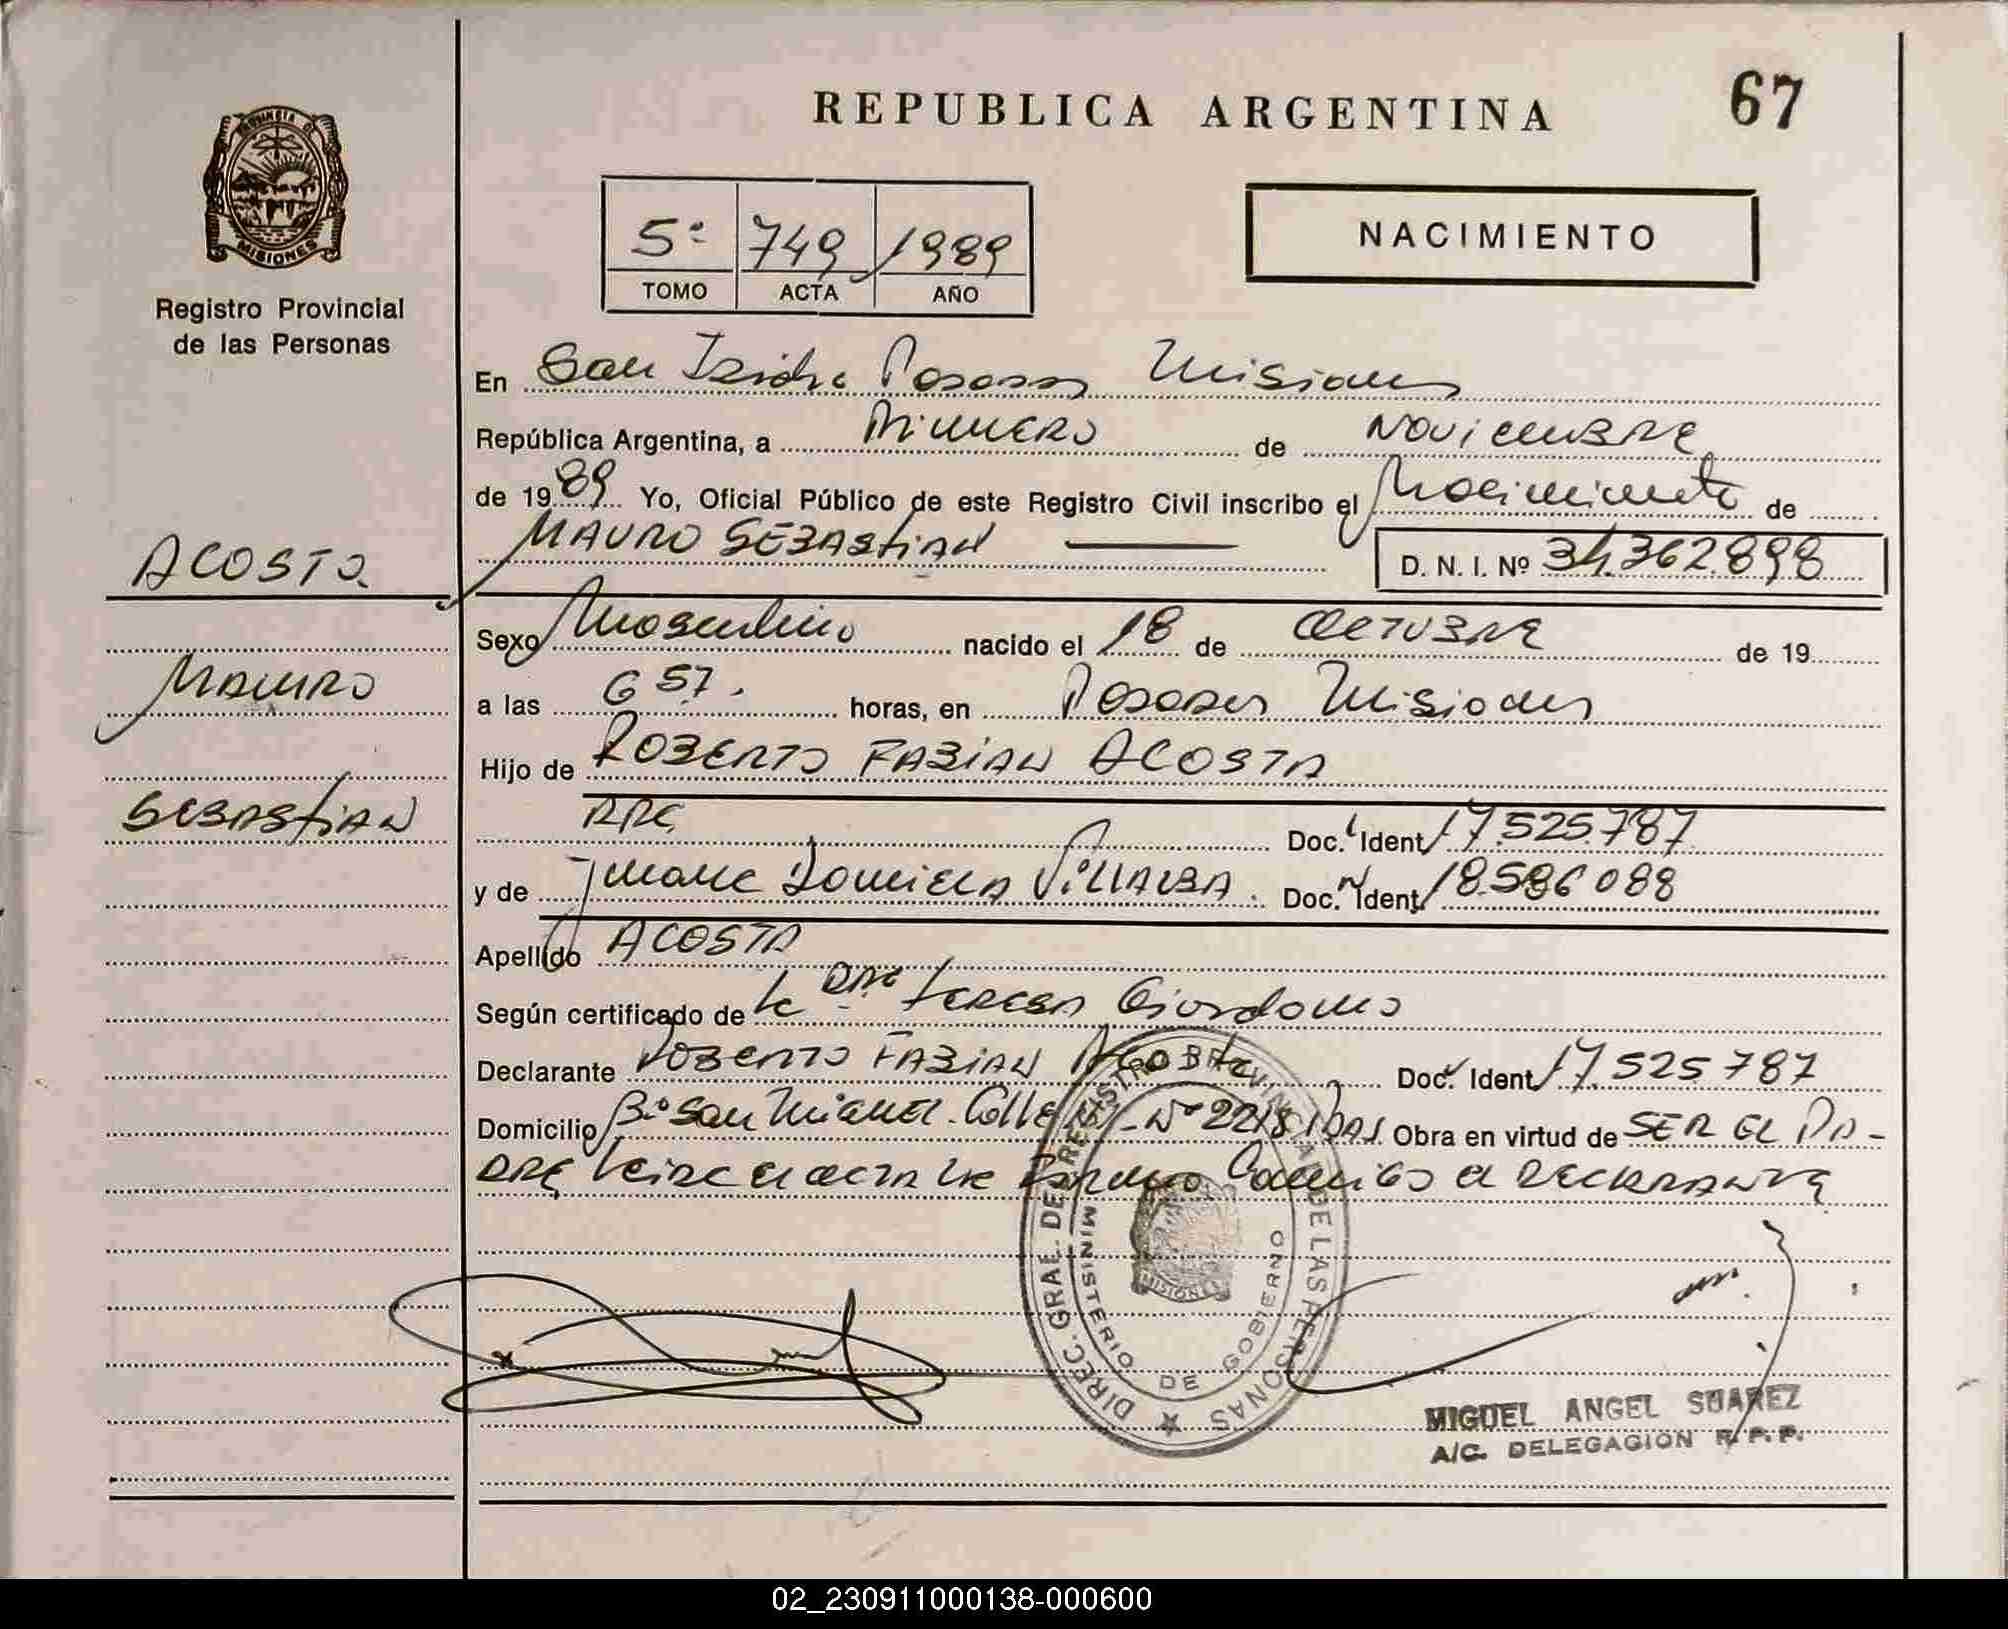 REPUBLICA ARGENTINA
67
PROVINCIA DE
MISIONES
Registro Provincial
de las Personas
5º 749 1989
TOMO ACTA AÑO
NACIMIENTO
En San Isidro Posadas Misiones
República Argentina, a Primero de Noviembre
de 1989 Yo, Oficial Público de este Registro Civil inscribo el Nacimiento de
ACOSTA
MAURO SEBASTIAN D. N. I. Nº 34.362.898
Sexo Masculino nacido el 18 de OCTUBRE de 19
MAURO
a las 6 57. horas, en Posadas Misiones
Hijo de ROBERTO FABIAN ACOSTA
SEBASTIAN
Doc. Ident 17.525.787
y de DANIELA VILLALBA. Doc. Ident 18.586088
Apellido ACOSTA
Según certificado de TERESA Giordano
Declarante ROBERTO FABIAN Acosta Doc. Ident 17.525 787
Domicilio Bº San MIGUEL. Calle Nº 2218 Pdas Obra en virtud de SER EL PA-
DRE Leida el acta la Firmo Conmigo el DECLARANTE
DIREC. GRAL. DEL REGISTRO PROVINCIAL DE LAS PERSONAS
MINISTERIO DE GOBIERNO
MISIONES
MIGUEL ANGEL SUAREZ
A/C. DELEGACION R. P. P.
02_230911000138-000600